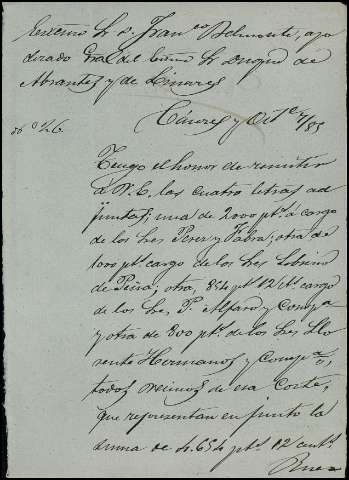 Excmo Sr D. Franco Belmonte, apo
derado Gral del Excmo Sr Duque de
Abrantes y de Linares
Cáceres y Oct
Tengo el honor de remitir
á V. E. las cuatro letras ad
juntas; una de 2000 pts á cargo
de los Sres Perez y Fabra; otra de
1000 pts cargo de los Sres Sobrino
de Peña; otra, 854 pts 12 cts cargo
de los Sres P. Alfaro y Compa
y otra de 800 pts de los Sres Llo
rente Hermanos y Compa,
todos vecinos de esa Corte,
que representan en junto la
suma de 4.654 pts 12 cents